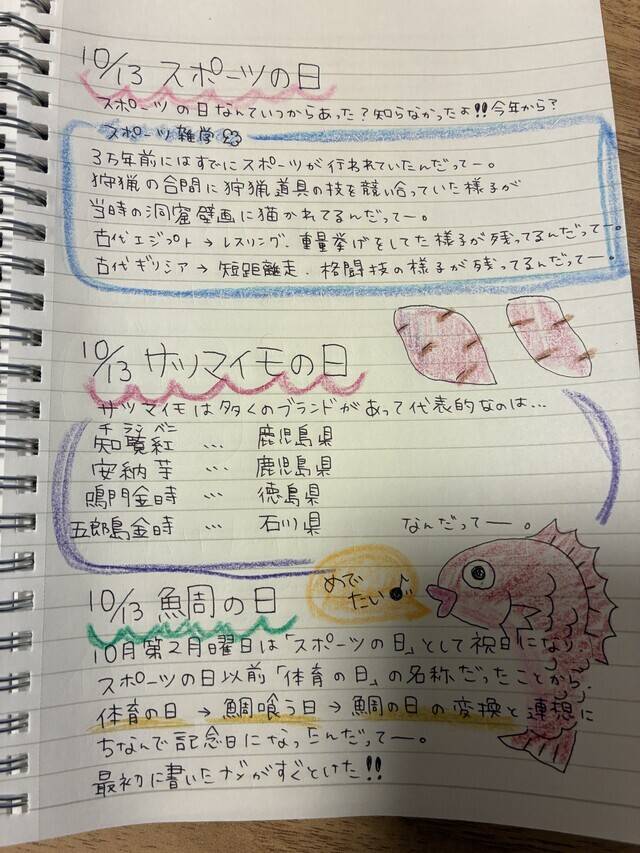 10/13 スポーツの日
スポーツの日なんていつからあった?知らなかったよ!!今年から?
スポーツ雑学
3万年前にはすでにスポーツが行われていたんだってー。
狩猟の合間に狩猟道具の技を競い合っていた様子が
当時の洞窟壁画に描かれてるんだってー。
古代エジプト→レスリング、重量挙げをしてた様子が残ってるんだってー。
古代ギリシア→短距離走、格闘技の様子が残ってるんだってー。
10/13 サツマイモの日
サツマイモは多くのブランドがあって代表的なのは…
チランベニ
知覧紅 … 鹿児島県
安納芋 … 鹿児島県
鳴門金時 … 徳島県
五郎島金時 … 石川県
なんだってー。
めで
たい♪
10/13 鯛の日
10月第2月曜日は「スポーツの日」として祝日になり
スポーツの日以前「体育の日」の名称だったことから、
体育の日→鯛喰う日→鯛の日の変換と連想に
ちなんで記念日になったんだってー。
最初に書いたナゾがすぐとけた!!